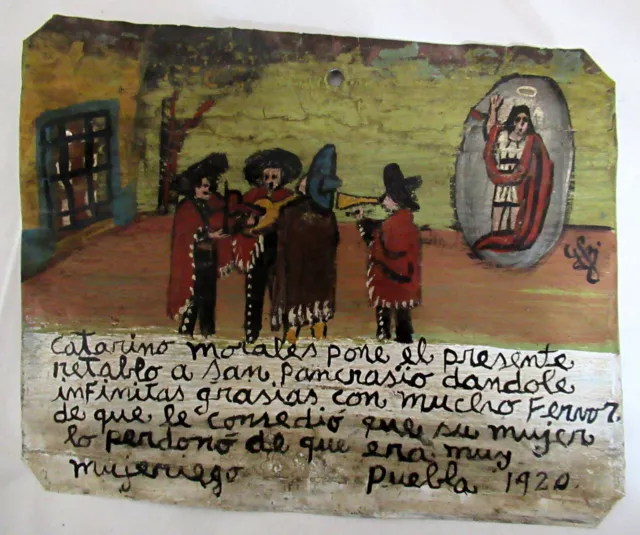 Catarino morales pone el presente
retablo a san Pancrasio dandole
infinitas grasias con mucho Fervor.
de que le consedió que su mujer
lo perdonó de que era muy
mujeriego Puebla 1920.